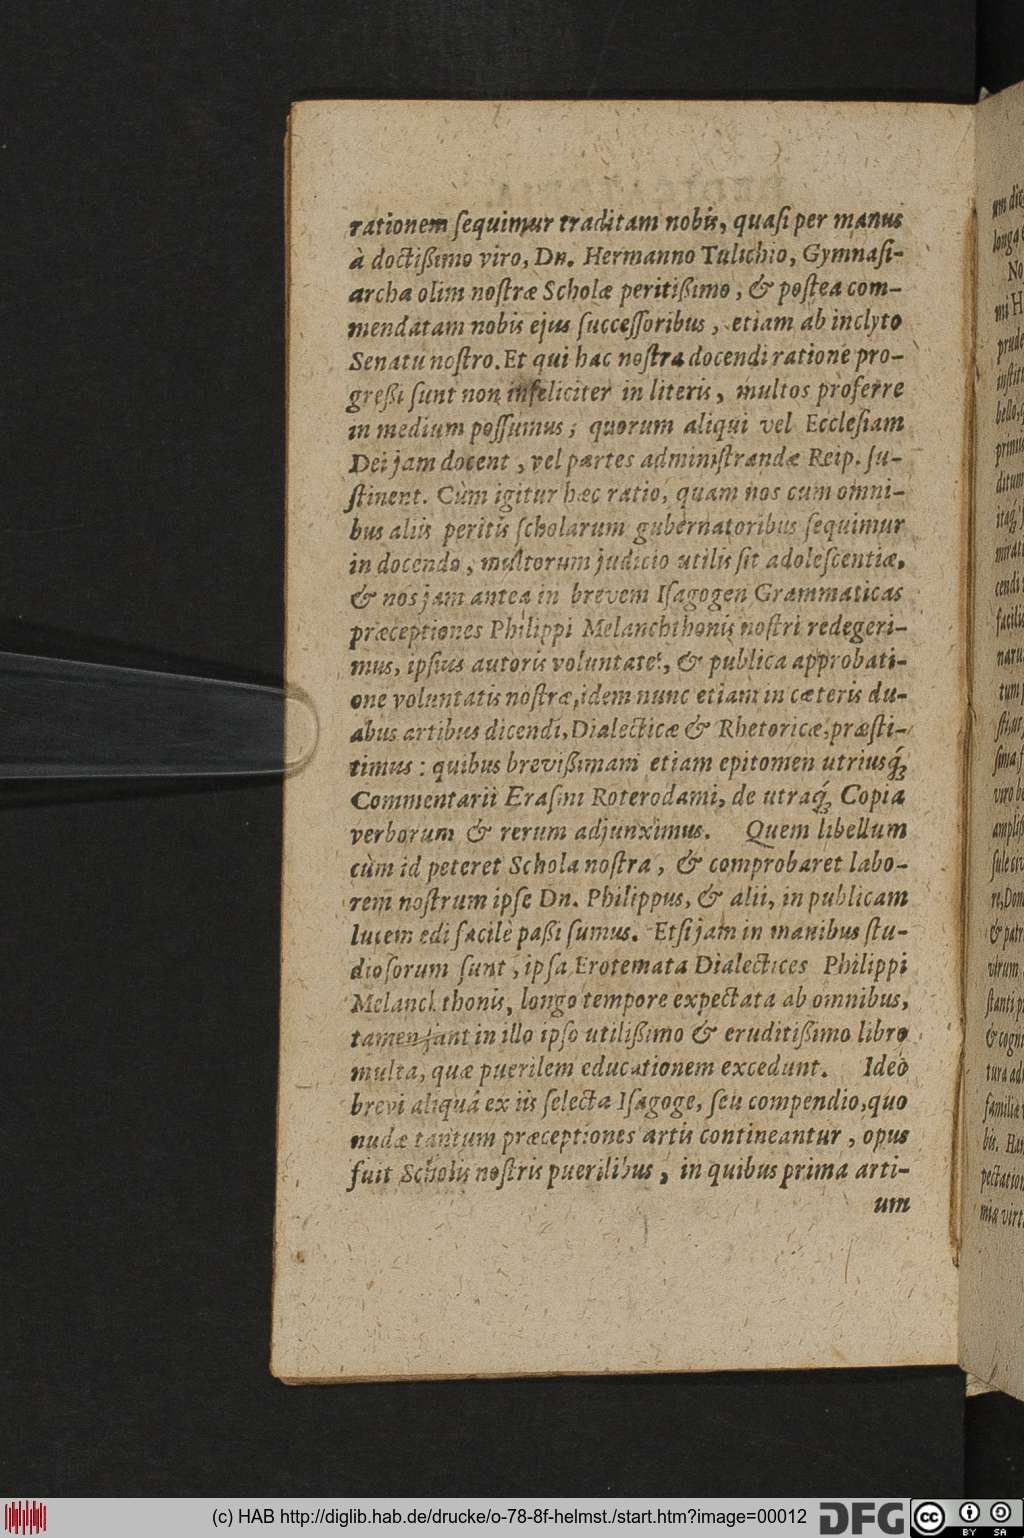 rationem ſequimur traditam nobis, quaſi per manus
à doctißimo viro, Dn. Hermanno Tulichio, Gymnaſi-
archa olim noſtræ Scholæ peritißimo, & poſtea com-
mendatam nobis ejus ſucceſſoribus, etiam ab inclyto
Senatu noſtro. Et qui hac noſtra docendi ratione pro-
greßi ſunt non infeliciter in literis, multos proferre
in medium poſſumus; quorum aliqui vel Eccleſiam
Dei jam docent, vel partes adminiſtrandæ Reip. ſu-
ſtinent. Cùm igitur hæc ratio, quam nos cum omni-
bus aliis peritis ſcholarum gubernatoribus ſequimur
in docendo, multorum judicio utilis ſit adoleſcentiæ,
& nos jam antea in brevem Iſagogen Grammaticas
præceptiones Philippi Melanchthonis noſtri redegeri-
mus, ipſius autoris voluntate, & publica approbati-
one voluntatis noſtræ, idem nunc etiam in cæteris du-
abus artibus dicendi, Dialecticæ & Rhetoricæ, præſti-
timus: quibus brevißimam etiam epitomen utriusq́ꝫ
Commentarii Eraſmi Roterodami, de utraq́ꝫ Copia
verborum & rerum adjunximus. Quem libellum
cùm id peteret Schola noſtra, & comprobaret labo-
rem noſtrum ipſe Dn. Philippus, & alii, in publicam
lucem edi facilè paßi ſumus. Etſi jam in manibus ſtu-
dioſorum ſunt, ipſa Erotemata Dialectices Philippi
Melanchthonis, longo tempore expectata ab omnibus,
tamen ſunt in illo ipſo utilißimo & eruditißimo libro
multa, quæ puerilem educationem excedunt. Ideò
brevi aliquâ ex iis ſelecta Iſagoge, ſeu compendio, quo
nudæ tantum præceptiones artis contineantur, opus
fuit Scholis noſtris puerilibus, in quibus prima arti-
um
(c) HAB http://diglib.hab.de/drucke/o-78-8f-helmst./start.htm?image=00012
DFG
cc
BY SA